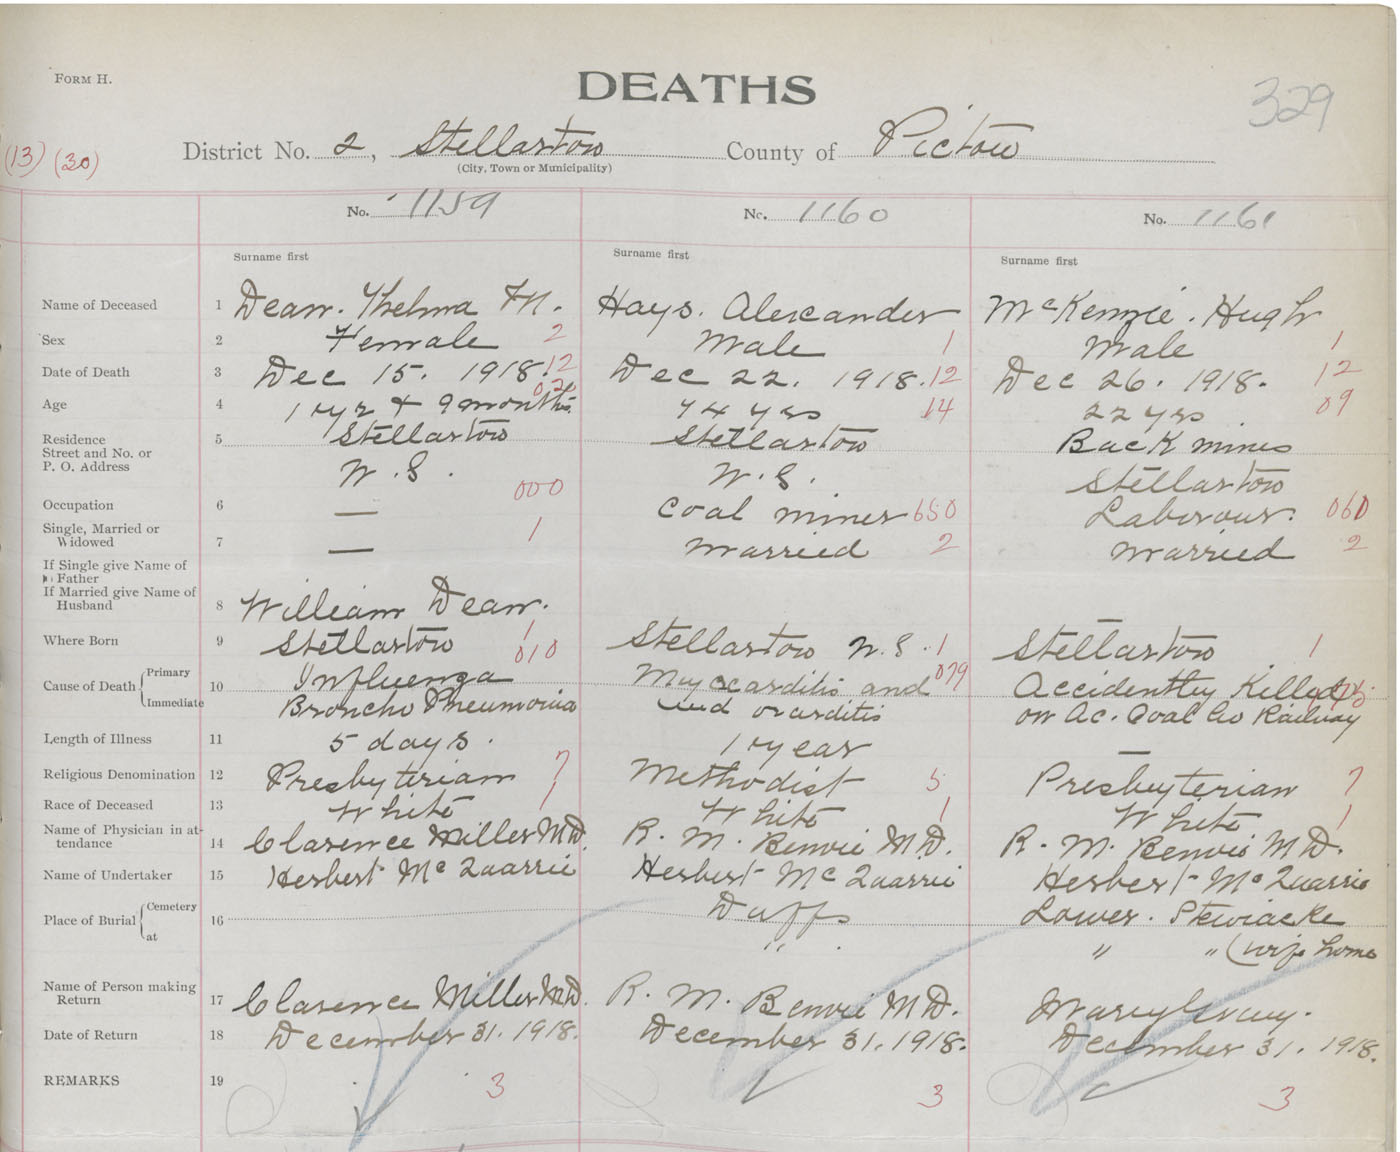 FORM H.
DEATHS
329
(13) (30)
District No. 2, Stellarton County of Pictou
(City, Town or Municipality)
No. 1159 No. 1160 No. 1161
Surname first Surname first Surname first
Name of Deceased 1 Dean. Thelma M. Hays. Alexander McKenzie. Hugh
Sex 2 Female 2 Male 1 Male 1
Date of Death 3 Dec 15. 1918. 12 Dec 22. 1918. 12 Dec 26. 1918. 12
Age 4 1 yr & 9 months 74 yrs 14 22 yrs 09
Residence 5 Stellarton Stellarton Back mines
Street and No. or
P. O. Address N.S. N.S. Stellarton
Occupation 6 — 000 Coal miner 650 Labourour. 060
Single, Married or
Widowed 7 — 1 Married 2 Married 2
If Single give Name of
Father
If Married give Name of
Husband 8 William Dean.
Where Born 9 Stellarton 1 Stellarton N.S. 1 Stellarton 1
Cause of Death Primary 10 Influenza 010 Myocarditis and 079 Accidentley Killed
Immediate Broncho Pneumonia on Ac. Coal Co Railway
Length of Illness 11 5 days. 1 year —
Religious Denomination 12 Presbyterian 7 Methodist 5 Presbyterian 7
Race of Deceased 13 White 1 White 1 White 1
Name of Physician in at-
tendance 14 Clarence Miller MD. R. M. Benvie MD. R. M. Benvie MD.
Name of Undertaker 15 Herbert McQuarrie Herbert McQuarrie Herbert McQuarrie
Place of Burial Cemetery 16 Duffs Lower. Stewiacke
at " " " " (wife home
Name of Person making
Return 17 Clarence Miller MD. R. M. Benvie MD.
Date of Return 18 December 31. 1918. December 31. 1918. December 31. 1918.
REMARKS 19 3 3 3